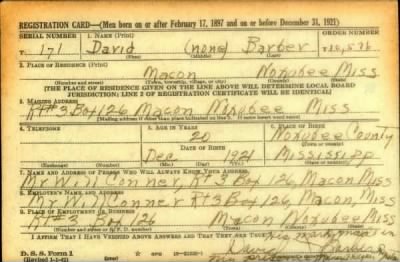 REGISTRATION CARD—(Men born on or after February 17, 1897 and on or before December 31, 1921)
SERIAL NUMBER 1. NAME (Print) ORDER NUMBER
T 171 David (none) Barber
(First) (Middle) (Last)
2. PLACE OF RESIDENCE (Print)
Macon Noxubee Miss
(Number and street) (Town, township, village, or city) (County) (State)
(THE PLACE OF RESIDENCE GIVEN ON THE LINE ABOVE WILL DETERMINE LOCAL BOARD
JURISDICTION; LINE 2 OF REGISTRATION CERTIFICATE WILL BE IDENTICAL)
3. MAILING ADDRESS
Rt 3 Box 126 Macon Noxubee Miss
4. TELEPHONE 5. AGE IN YEARS 6. PLACE OF BIRTH
20 Noxubee County
DATE OF BIRTH (Town or county)
Dec 1921 Mississipp
(Exchange) (Number) (Mo.) (Day) (Yr.) (State or country)
7. NAME AND ADDRESS OF PERSON WHO WILL ALWAYS KNOW YOUR ADDRESS
Mr Conner, Rt 3 Box 126, Macon, Miss
8. EMPLOYER'S NAME AND ADDRESS
Mr Will Conner Rt 3 Box 126, Macon, Miss
9. PLACE OF EMPLOYMENT OR BUSINESS
Rt #3 Box 126 Macon Noxubee Miss
(Number and street or R. F. D. number) (Town) (County) (State)
I AFFIRM THAT I HAVE VERIFIED ABOVE ANSWERS AND THAT THEY ARE TRUE.
D. S. S. Form 1
(Revised 1-1-42) (over)
David Barber